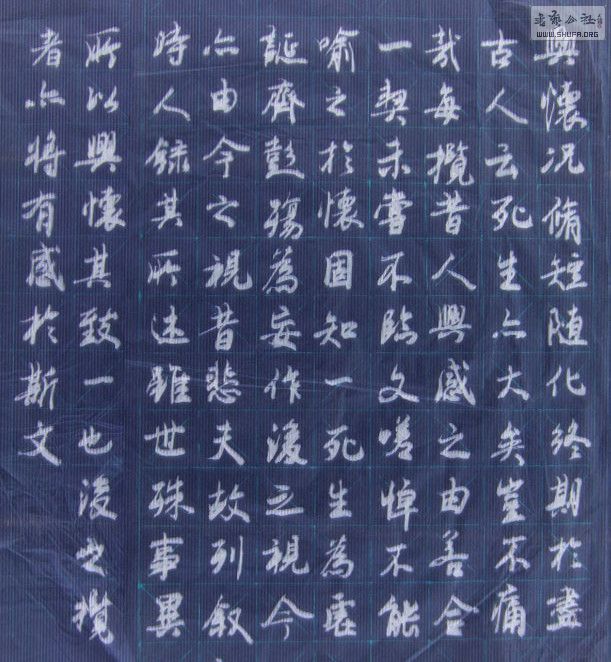 興懷况脩短随化終期於盡
古人云死生亦大矣豈不痛
哉每攬昔人興感之由若合
一契未嘗不臨文嗟悼不能
喻之於懷固知一死生為虛
誕齊彭殤為妄作後之視今
亦由今之視昔悲夫故列叙
時人録其所述雖世殊事異
所以興懷其致一也後之攬
者亦將有感於斯文
WWW.SHUFA.ORG